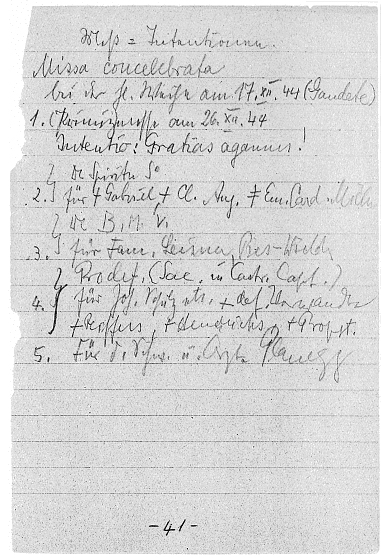 Meß = Intentionen.
Missa concelebrata
bei der hl. Weihe am 17.XII.44 (Gaudete)
1. (Primizmesse am 26.XII.44
Intentio: Gratias agamus!
De Spiritu So
2. für + Gabriel, + Cl. Aug. + Em. Card.
De B.M.V.
3. für Fam. Leisner,
Pro def. (Sac. in Castr. Capt.)
4. für Joh. + def.
+ + Hendricks, + Propst.
5. Für d. Schw. u. Ärzte Planegg
-41-